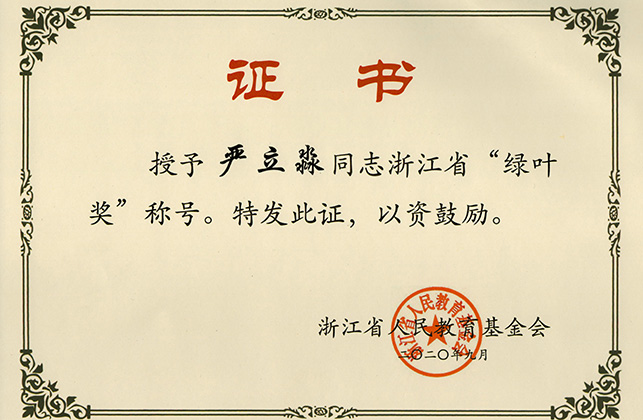 证书
授予 严立淼同志浙江省“绿叶
奖”称号。特发此证，以资鼓励。
浙江省人民教育基金会
二〇二〇年九月
浙江省人民教育基金会